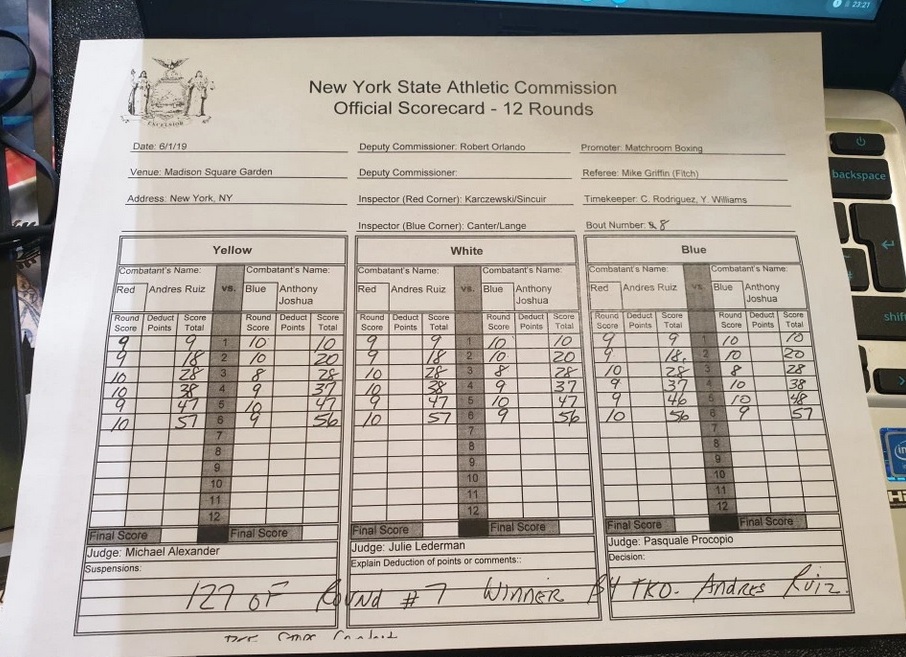 23:21
EXCELSIOR
New York State Athletic Commission
Official Scorecard - 12 Rounds
Date: 6/1/19 Deputy Commissioner: Robert Orlando Promoter: Matchroom Boxing
Venue: Madison Square Garden Deputy Commissioner: Referee: Mike Griffin (Fitch)
Address: New York, NY Inspector (Red Corner): Karczewski/Sincuir Timekeeper: C. Rodriguez, Y. Williams
Inspector (Blue Corner): Canter/Lange Bout Number: 8
Yellow White Blue
Combatant's Name: Combatant's Name: Combatant's Name: Combatant's Name: Combatant's Name: Combatant's Name:
Red Andres Ruiz vs. Blue Anthony Red Andres Ruiz vs. Blue Anthony Red Andres Ruiz vs. Blue Anthony
Joshua Joshua Joshua
Round Deduct Score Round Deduct Score Round Deduct Score Round Deduct Score Round Deduct Score Round Deduct Score
Score Points Total Score Points Total Score Points Total Score Points Total Score Points Total Score Points Total
9 9 1 10 10 9 9 1 10 10 9 9 1 10 10
9 18 2 10 20 9 18 2 10 20 9 18 2 10 20
10 28 3 8 28 10 28 3 8 28 10 28 3 8 28
10 38 4 9 37 10 38 4 9 37 9 37 4 10 38
9 47 5 10 47 9 47 5 10 47 9 46 5 10 48
10 57 6 9 56 10 57 6 9 56 10 56 6 9 57
7 7 7
8 8 8
9 9 9
10 10 10
11 11 11
12 12 12
Final Score Final Score Final Score Final Score Final Score Final Score
Judge: Michael Alexander Judge: Julie Lederman Judge: Pasquale Procopio
Suspensions: Explain Deduction of points or comments:: Decision:
127 OF ROUND #7 WINNER BY TKO. Andres Ruiz.
backspace
shift